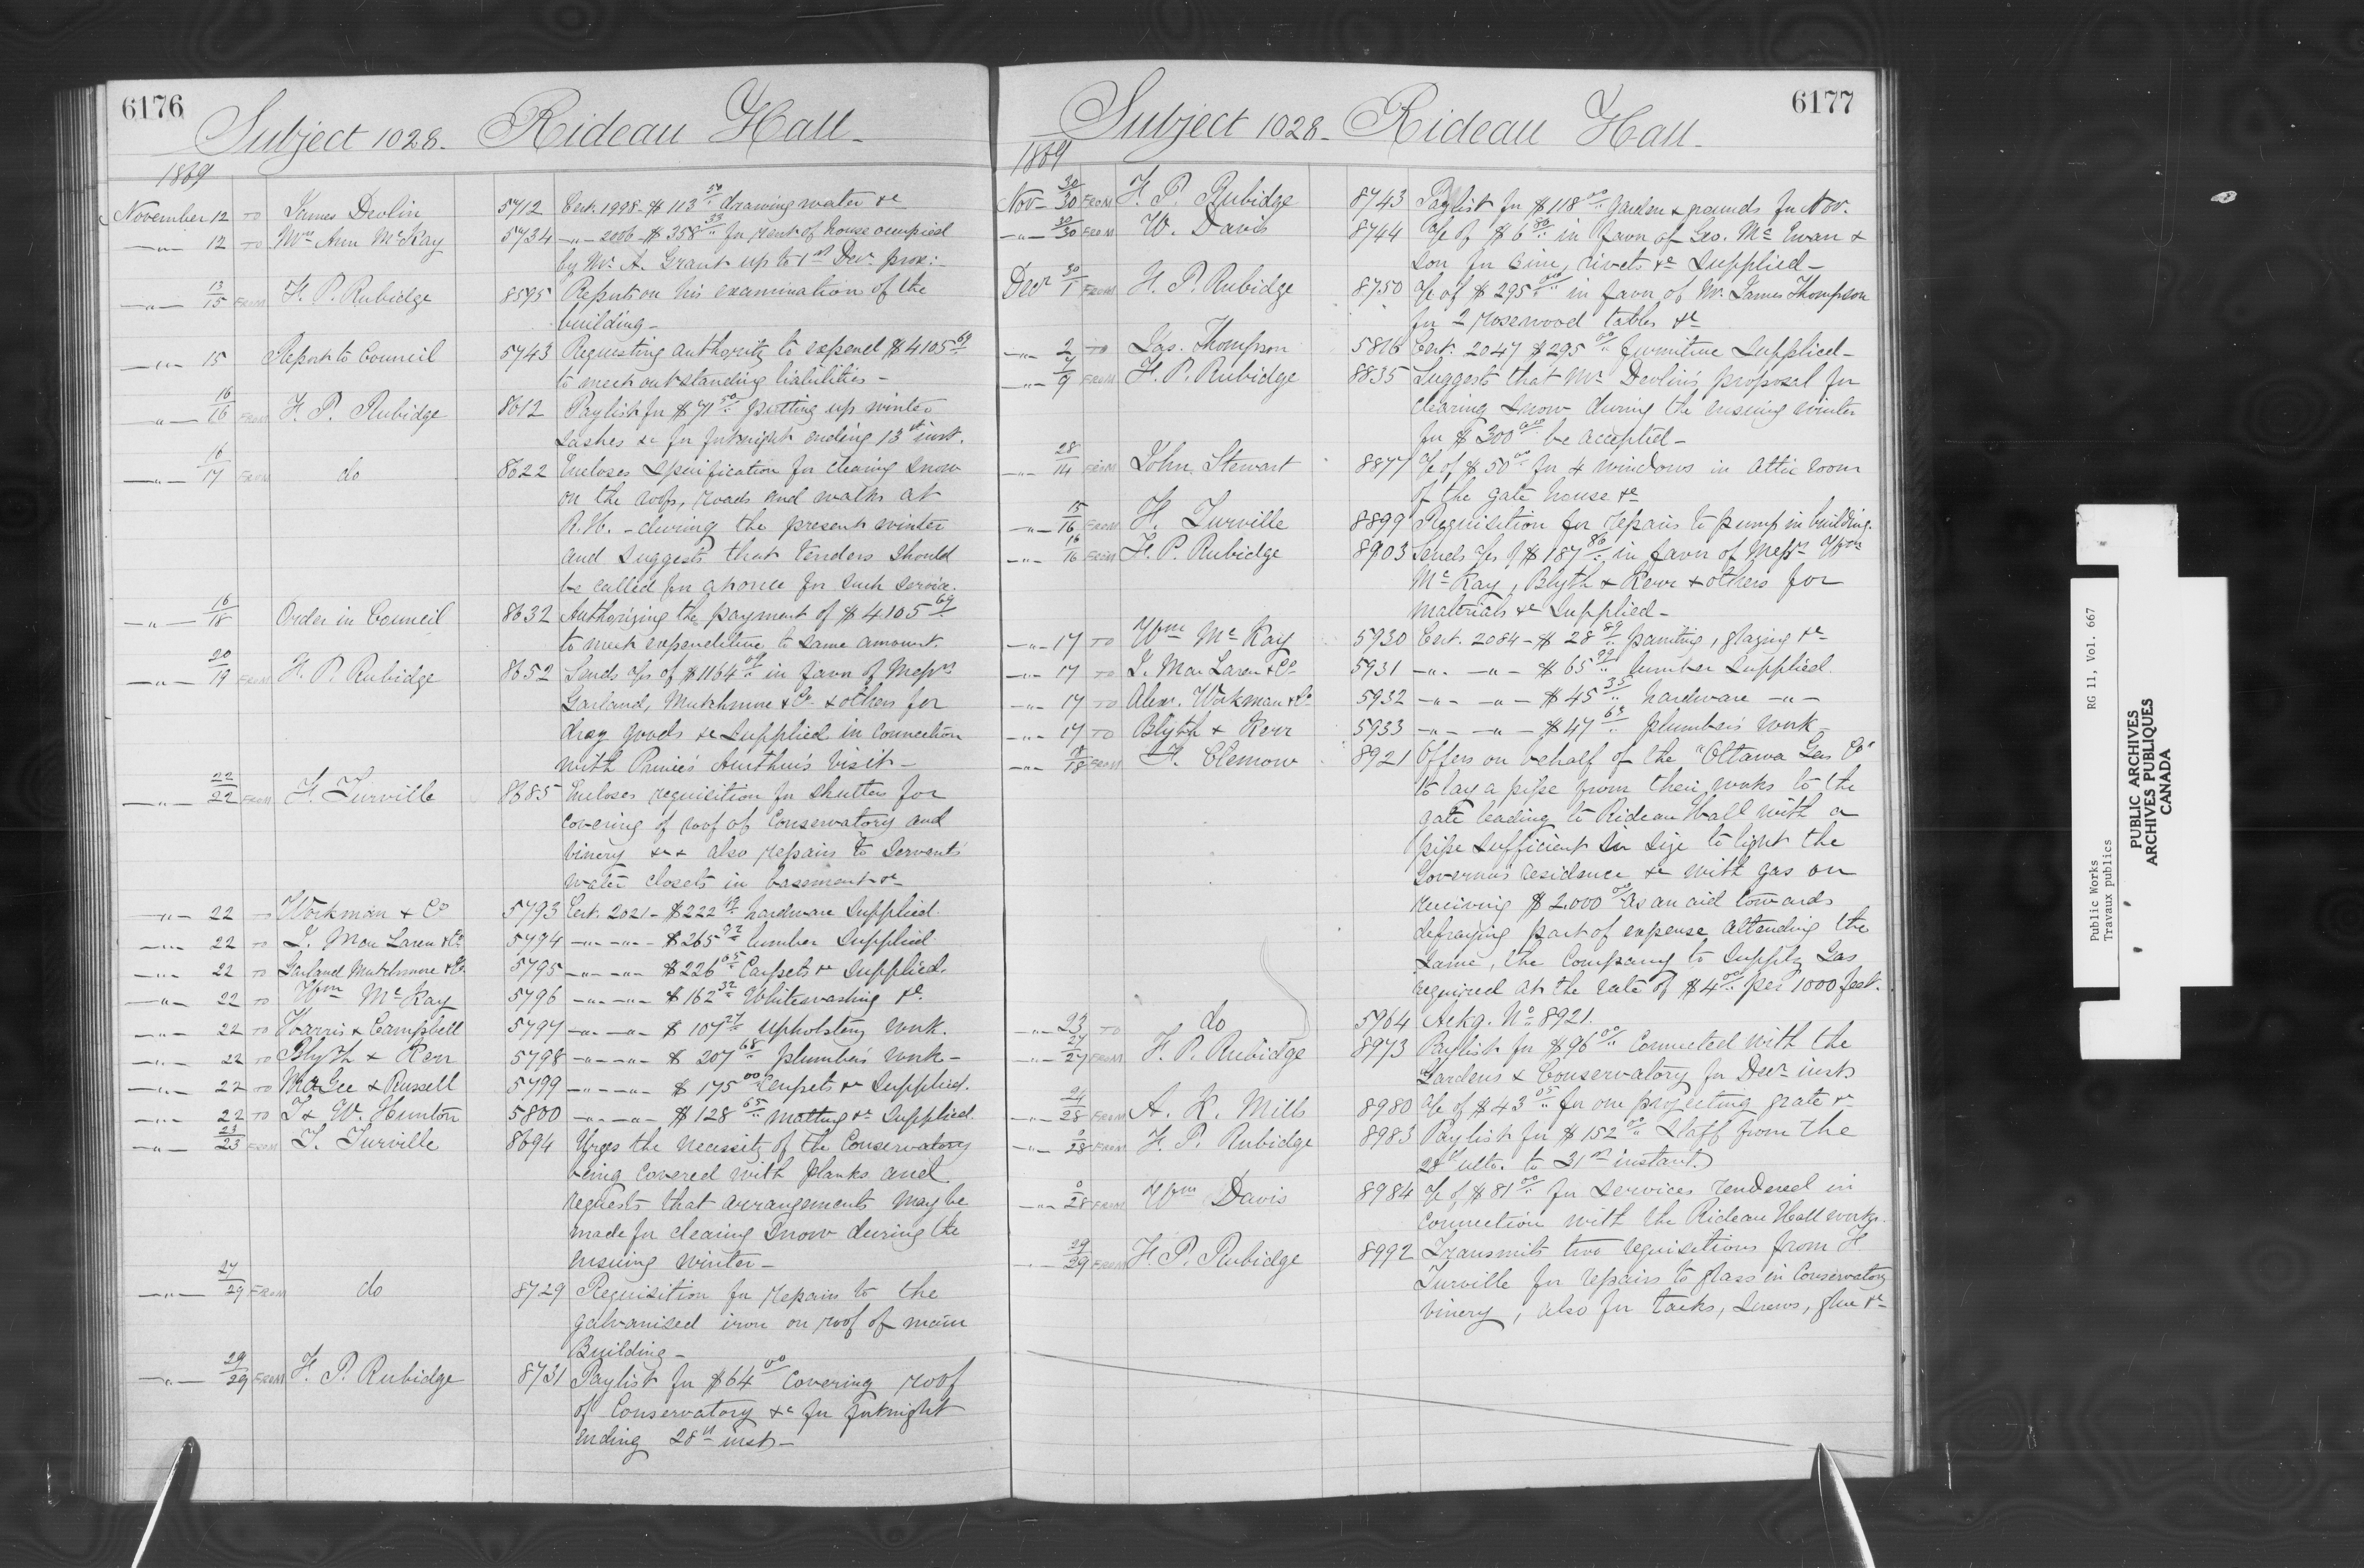 6176
Subject 1028. Rideau Hall.
1869
November 12 TO James Devlin 5712 Cert. 1998 - $113.50 drawing water &c
" 12 TO Mrs Ann McKay 5734 " 2006 - $358.33 for rent of house occupied
by Mr A. Grant up to 1st Decr prox:
" 13/15 FROM F. P. Rubidge 8595 Reports on his examination of the
building -
" 15 Report to Council 5743 Requesting authority to expend $4105.69
to meet outstanding liabilities -
" 16/16 FROM F. P. Rubidge 8612 Paylist for $71.50 putting up winter
sashes &c for fortnight ending 13th inst.
" 16/17 FROM do 8622 Encloses specification for clearing snow
on the roofs, roads and walks at
R.H. - during the present winter
and suggests that tenders should
be called for at once for such service.
" 16/18 Order in Council 8632 Authorizing the payment of $4105.69
to meet expenditure to same amount.
" 20/19 FROM F. P. Rubidge 8652 Sends a/cs of $1164.09 in favor of Messrs
Garland, Mutchmore & Co. & others for
dray goods &c supplied in connection
with Prince Arthur's visit -
" 22/22 FROM F. Turville 8685 Encloses requisition for shutters for
covering of roof of Conservatory and
vinery &c &c also repairs to servants'
water closets in basement &c
" 22 TO Workman & Co 5793 Cert. 2021 - $222. hardware supplied.
" 22 TO J. MacLaren & Co 5794 " " $265.92 lumber supplied
" 22 TO Garland Mutchmore & Co. 5795 " " $226.65 Carpets &c supplied.
" 22 TO Wm McKay 5796 " " $162.32 Whitewashing &c.
" 22 TO Harris & Campbell 5797 " " $107.27 upholstery work.
" 22 TO Blyth & Kerr 5798 " " $207.68 plumber's work -
" 22 TO McGee & Russell 5799 " " $175.00 Carpets &c supplied.
" 22 TO T & W. Hunton 5800 " " $128.65 matting &c supplied
" 23/23 FROM F. Turville 8694 Urges the necessity of the Conservatory
being covered with planks and
requests that arrangements may be
made for clearing snow during the
ensuing winter -
" 27/29 FROM do 8729 Requisition for repairs to the
galvanised iron on roof of main
Building -
" 29/29 FROM F. P. Rubidge 8731 Paylist for $64.00 covering roof
of Conservatory &c for fortnight
ending 28th inst -
6177
Subject 1028. Rideau Hall.
1869
Nov 30/30 FROM F. P. Rubidge 8743 Paylist for $118.00 Garden & grounds for Nov.
" 30/30 FROM W. Davis 8744 a/c of $6.80 in favor of Geo. McEwan &
Son for rivets &c supplied -
Decr 30/1 FROM F. P. Rubidge 8750 a/c of $295.00 in favor of Mr James Thompson
for 2 rosewood tables &c
" 2 TO Jas. Thompson 5816 Cert. 2047 $295.00 furniture supplied -
" 7/9 FROM F. P. Rubidge 8835 Suggests that Mr Devlin's proposal for
clearing snow during the ensuing winter
for $300.00 be accepted -
" 28/14 FROM John Stewart 8877 a/c of $50.00 for 4 windows in attic room
of the gate house &c
" 15/16 FROM F. Turville 8899 Requisition for repairs to pump in building.
" 16/16 FROM F. P. Rubidge 8903 Sends a/cs of $187.86 in favor of Messrs Wm
McKay, Blyth & Kerr & others for
materials &c supplied -
" 17 TO Wm McKay 5930 Cert. 2084 - $28.89 painting, glazing &c
" 17 TO J. MacLaren & Co. 5931 " " $65.99 lumber supplied
" 17 TO Alexr. Workman & Co 5932 " " $45.35 hardware "
" 17 TO Blyth & Kerr 5933 " " $47.63 plumber's work -
" 18 FROM F. Clemow 8921 Offers on behalf of the "Ottawa Gas Co"
to lay a pipe from their works to the
gate leading to Rideau Hall with a
pipe sufficient in size to light the
Governor's residence &c with gas on
receiving $2,000.00 as an aid towards
defraying part of expense attending the
same, the Company to supply Gas
required at the rate of $4.00 per 1000 feet.
" 23 TO do 5964 Ackg. No 8921.
" 27/27 FROM F. P. Rubidge 8973 Paylist for $96.00 connected with the
Gardens & Conservatory for Decr inst
" 24/28 FROM A. K. Mills 8980 a/c of $43.05 for one projecting grate &c
" 0/28 FROM F. P. Rubidge 8983 Paylist for $152.00 Staff from the
28th ulto. to 31st instant.
" 0/28 FROM Wm Davis 8984 a/c of $81.00 for services rendered in
connection with the Rideau Hall works.
" 29/29 FROM F. P. Rubidge 8992 Transmits two requisitions from F
Turville for repairs to glass in Conservatory
vinery, also for tacks, screws, glue &c
Public Works RG 11, Vol. 667
Travaux publics
PUBLIC ARCHIVES
ARCHIVES PUBLIQUES
CANADA